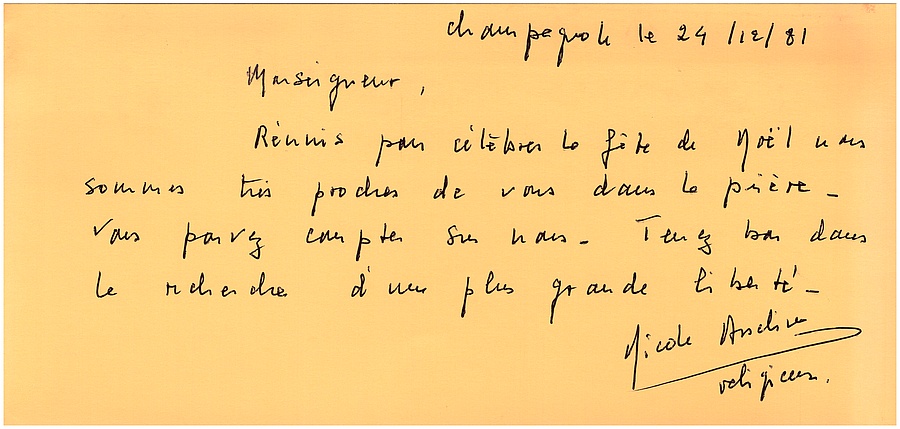 Champagnole le 24/12/81
Monseigneur,
Réunis pour célébrer la fête de Noël nous
sommes très proches de vous dans la prière _
Vous pouvez compter sur nous _ Tenez bon dans
la recherche d'une plus grande liberté _
Nicole
religieuse.